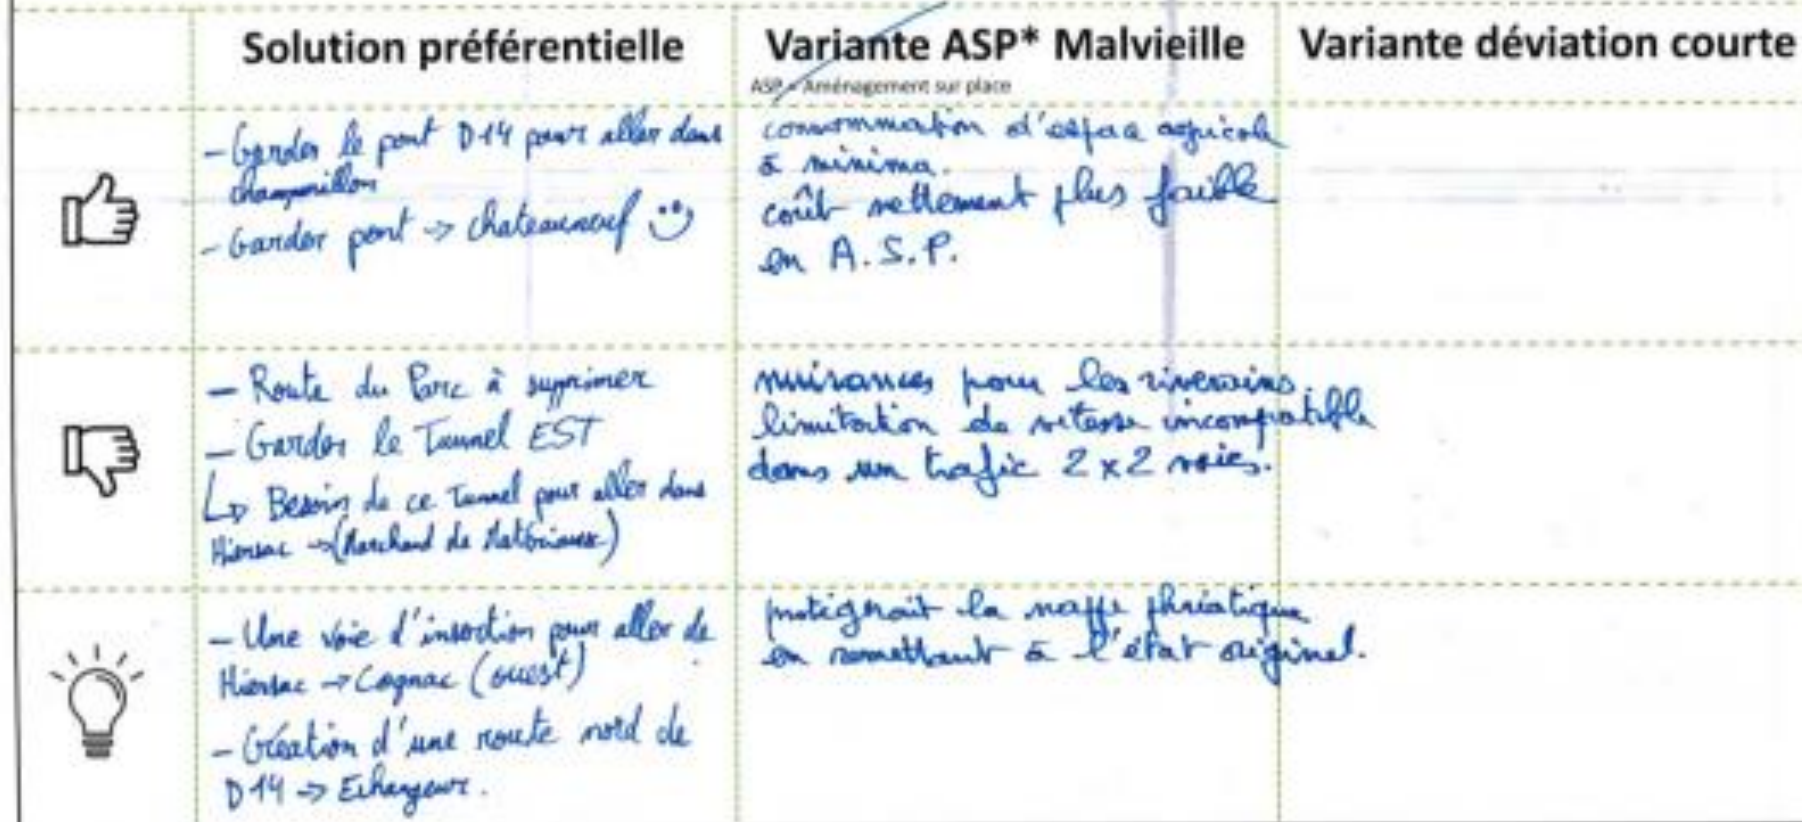 Solution préférentielle
Variante ASP* Malvieille
ASP = Aménagement sur place
Variante déviation courte
- Garder le pont D14 pour aller dans
champmillon
- Garder pont -> chateauneuf
consommation d'espace agricole
à minima.
coût nettement plus faible
en A.S.P.
- Route du Parc à supprimer
- Garder le Tunnel EST
↳ Besoin de ce Tunnel pour aller dans
Hiersac -> (Marchand de Matériaux)
nuisances pour les riverains
limitation de vitesse incompatible
dans un trafic 2x2 voies.
- Une voie d'insertion pour aller de
Hiersac -> Cognac (ouest)
- Création d'une route nord de
D14 -> Echangeur.
la nappe phréatique
en remettant à l'état original.